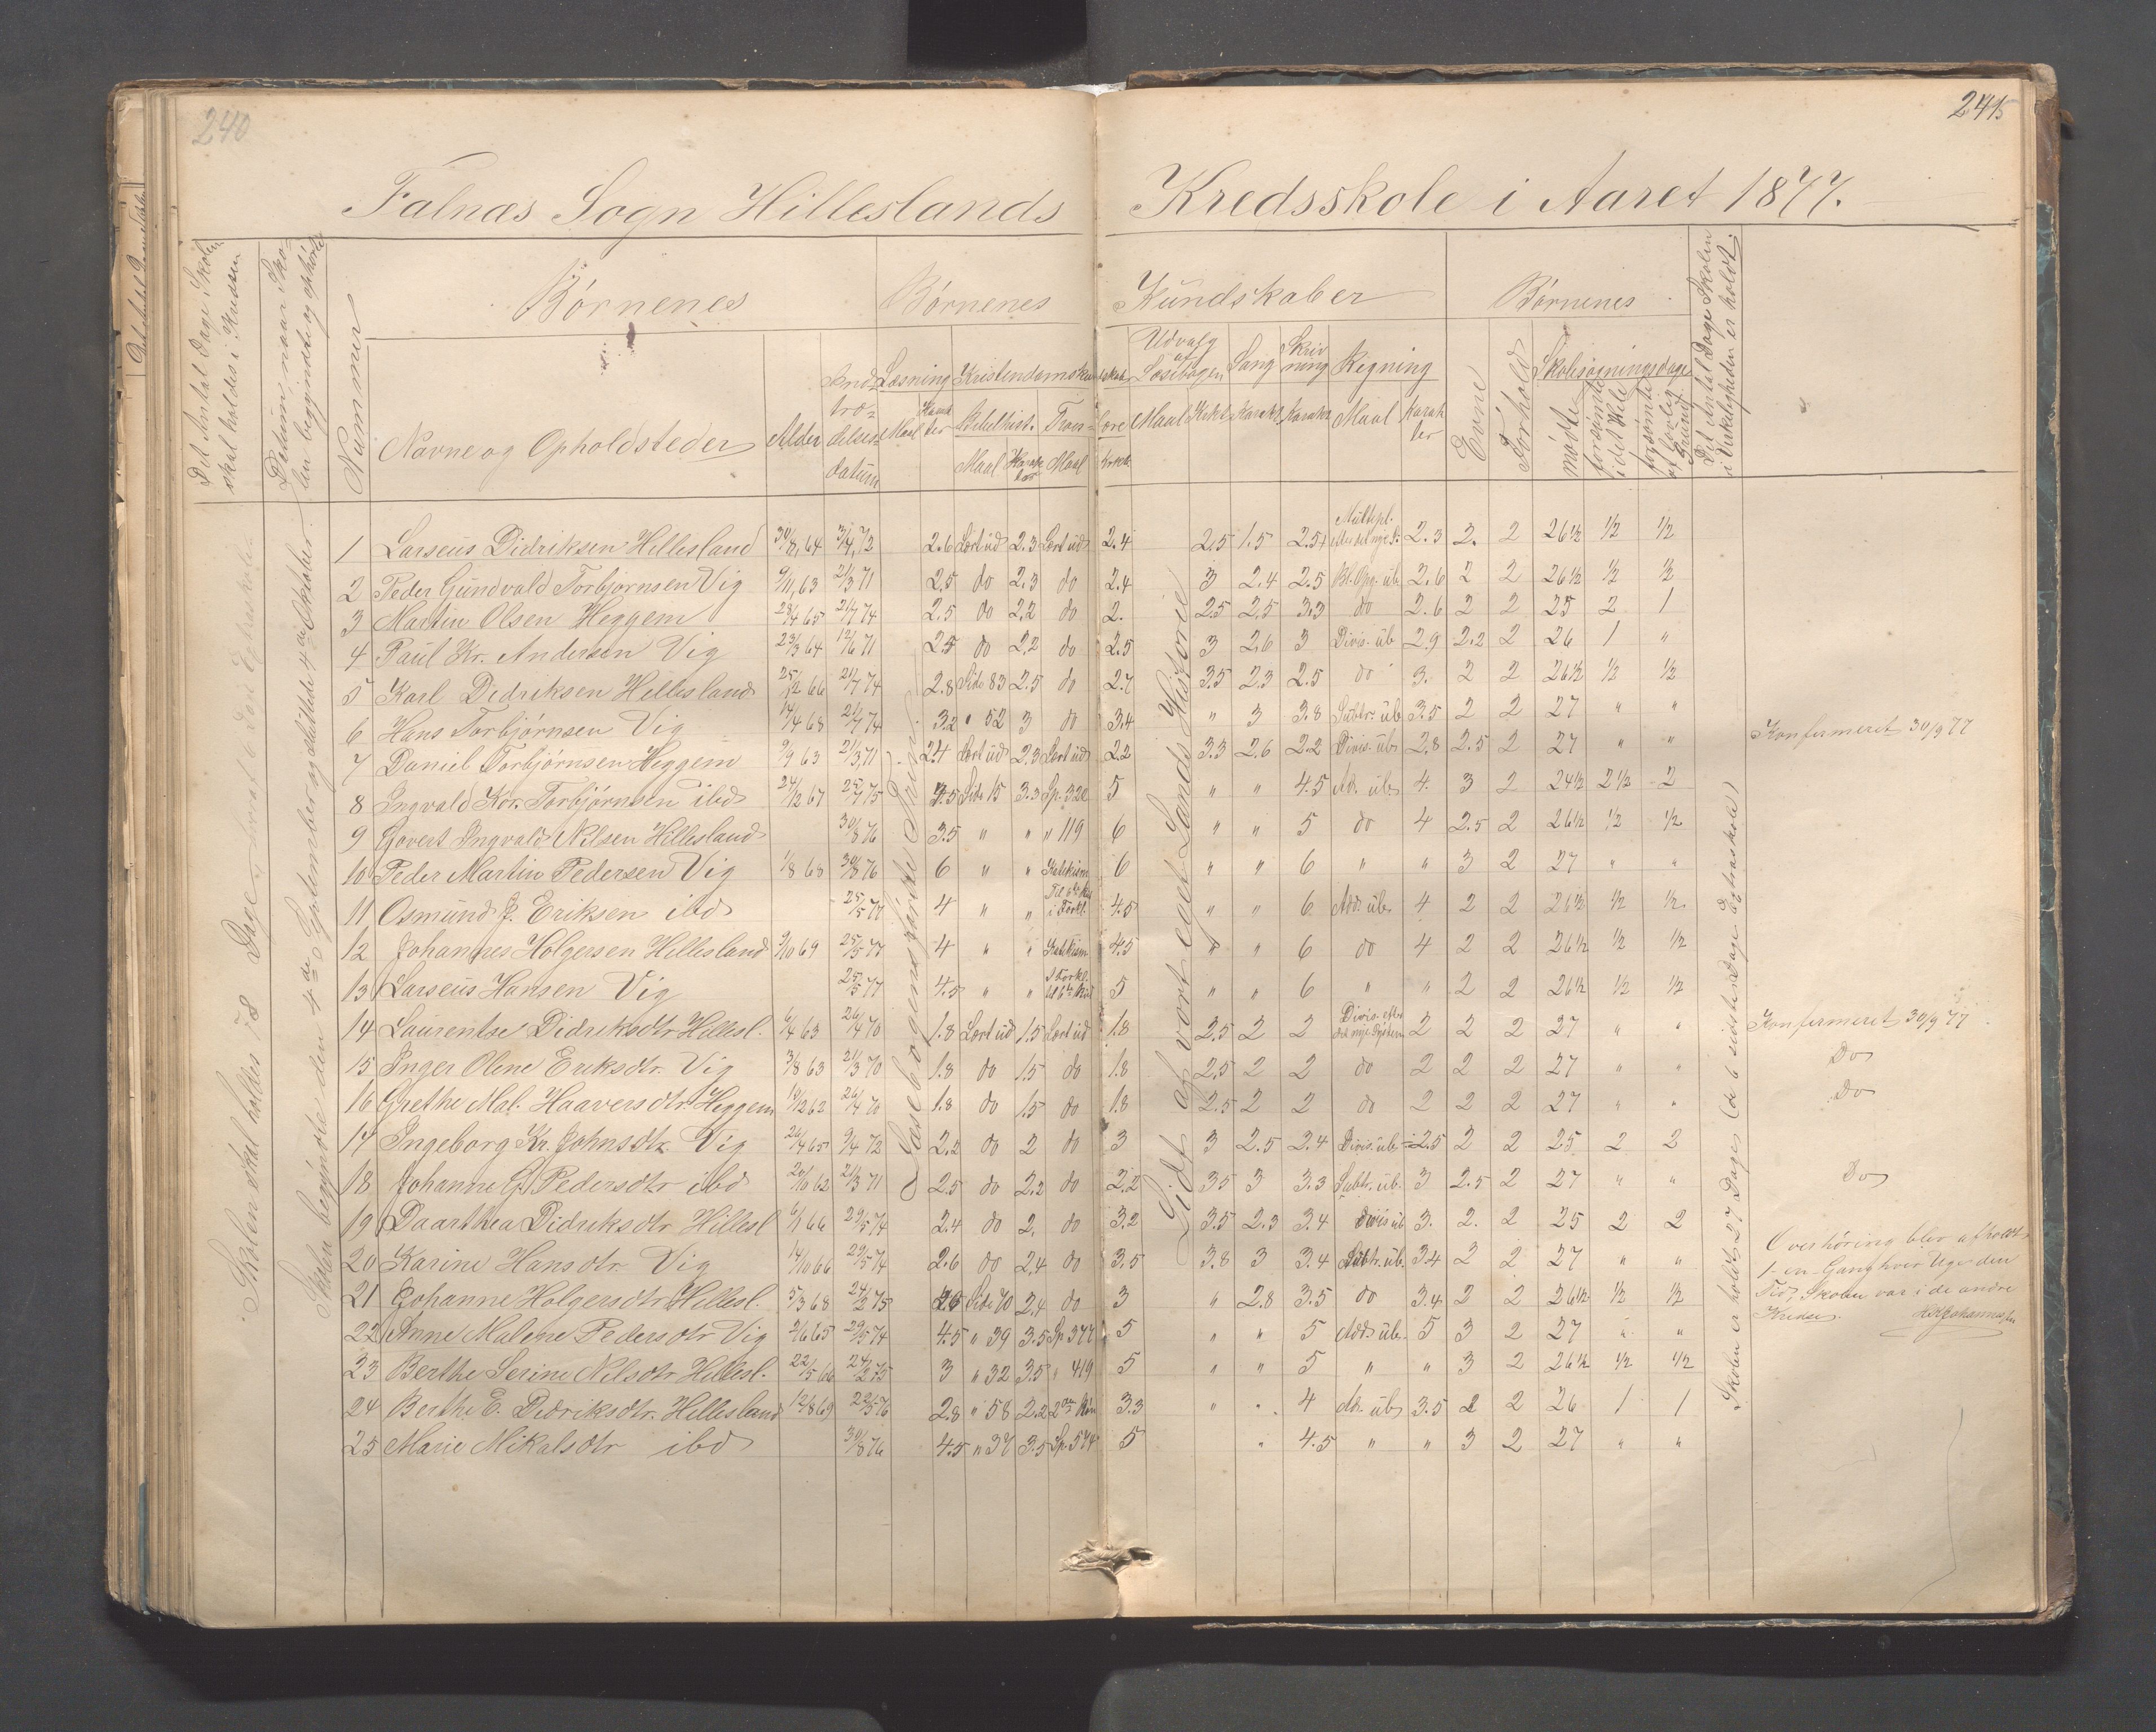 240
241
Falnæs Sogn Hilleslands Kredsskole i Aaret 1877.
Det Antal Dage Skolen skal holdes i Kredsen
Datum, naar Skolen begyndte og sluttede
Nummer
Børnenes
Navne og Opholdsteder
Alder
Indtrædelsesdatum
Børnenes Kundskaber
Læsning
Maal
Karakter
Kristendomskundskab
Bibelhist.
Maal
Karakter
Troeslære
Maal
Karakt.
Udvalg af Læsebogen
Maal
Karkt.
Sang
Karakt.
Skrivning
Karakr
Regning
Maal
Karakter
Børnenes
Evne
Forhold
Skolesøgningsdage
mødte
forsømte i det Hele
forsømte af lovlig Grund
Det Antal Dage Skolen i Virkeligheden er holdt.
Skolen skal holdes 78 Dage
Skolen begyndte den 4de September og sluttede 4de Oktober.
Læsebogens
Lidt af vort eget Lands Historie
Skolen er holdt 27 Dage (de 6 sidste Dage Extraskole)
1 Larseus Didriksen Hillesland 30/8 64 3/4 72 2.6 Lært ud 2.3 Lært ud 2.4 2.5 1.5 2.5 Multipl. efter det nye S. 2.3 2. 2 26½ ½ ½
2 Peder Gundvald Torbjørnsen Vig 9/11 63 21/3 71 2.5 do 2.3 do 2.4 3 2.4 2.5 Bl. Opg. üb 2.6 2 2 26½ ½ ½
3 Martin Olsen Heggem 28/4 65 21/7 74 2.5 do 2.2 do 2. 2.5 2.5 3.3 do 2.6 2 2 25 2 1
4 Paul Kr. Andersen Vig 23/3 64 12/6 71 2.5 do 2.2 do 2.5 3 2.6 3 Divis. üb 2.9 2.2 2 26 1 "
5 Karl Didriksen Hillesland 25/12 66 21/7 74 2.8 Side 83 2.5 do 2.7 3.5 2.3 2.5 do 3. 2 2 26½ ½ ½
6 Hans Torbjørnsen Vig 14/4 68 21/7 74 3.2 " 52 3 do 3.4 " 3 3.8 Subtr. üb 3.5 2 2 27 " "
7 Daniel Torbjørnsen Heggem 9/9 63 21/3 71 2.4 Lært ud 2.3 Lært ud 2.2 3.3 2.6 2.2 Divis. üb 2.8 2.5 2 27 " " Konfirmeret 30/9 77
8 Ingvald Kor. Torbjørnsen ibd 24/12 67 3.5 Side 15 3.3 Sp. 322 5 " " 4.5 Ad. üb 4. 3 2 24½ 2½ 2
9 Govert Ingvald Nilsen Hillesland 30/8 76 3.5 " " " 119 6 " " 5 do 4 2.5 2 26½ ½ ½
10 Peder Martin Pedersen Vig 1/8 68 30/8 76 6 " " Katekism 6 " " 6 " " 3 2 27 " "
11 Osmund J. Eriksen ibd 25/5 77 4 " " 4.5 " " 6 Add. üb 4 2 2 26½ ½ ½
12 Johannes Holgersen Hillesland 9/10 69 25/5 77 4 " " Katekism 4.5 " " 6 do 4 2 2 26½ ½ ½
13 Larseus Hansen Vig 25/5 77 4.5 " " 5 " " 6 " " 2 2 26½ ½ ½
14 Laurentse Didriksdtr Hillesl. 6/4 63 26/4 70 1.8 Lært ud 1.5 Lært ud 1.8 2.5 2 2 Divis. efter det nye System 2 2 2 27 " " Konfirmeret 30/9 77
15 Inger Oline Eriksdtr. Vig 3/8 63 21/3 70 1.8 do 1.5 do 1.8 2.5 2 2 do 2 2 2 27 " " Do
16 Grethe Mal. Haaversdtr Heggem 13/12 62 26/4 70 1.8 do 1.5 do 1.8 2.5 2 2 do 2 2 2 27 " " Do
17 Ingeborg Kr. Johnsdtr. Vig 26/4 65 9/4 72 2.2 do 2 do 3 3 2.5 2.4 Divis. üb 2.5 2 2 25 2 2
18 Johanne G. Pedersdtr ibd 20/10 62 21/3 71 2.5 do 2.2 do 2.2 3.5 3 3.3 Subtr. üb. 3 2.5 2 27 " " Do
19 Daarthea Didriksdtr Hillesl 6/1 66 29/5 74 2.4 do 2. do 3.2 3.5 2.3 3.4 Divis üb 3. 2. 2 25 2 2
20 Karine Hansdtr. Vig 14/10 66 29/5 74 2.6 do 2.4 do 3.5 3.8 3 3.4 Subtr. üb. 3.4 2 2 27 " "
21 Johanne Holgersdtr Hillesl. 5/3 68 24/2 75 2.6 Side 70 2.4 do 3 " 2.8 3.5 do 3.4 2 2 26½ ½ ½
22 Anne Malene Pedersdtr Vig 2/6 65 29/5 74 4.5 " 39 3.5 Sp. 377 5 " " 5 Add üb. 5 3 2 27 " "
23 Berthe Serine Nilsdtr Hillesl. 22/5 66 24/2 75 3 " 32 3.5 " 419 5 " " 5 " " 3 2 26½ ½ ½
24 Berthe E. Didriksdtr. Hillesland 12/8 69 22/5 76 2.8 " 58 2.2 3.3 " " 4 Ad. üb 3.5 2 2 26 1 1
25 Marie Mikalsdtr ibd 30/8 76 4.5 " 37 3.5 Sp. 574 5 " 4.5 " " 3 2 27 " "
Overhøring blev afholdt
1 en Gang hver Uge den
Tid, Skolen var i de andre
Kredse.